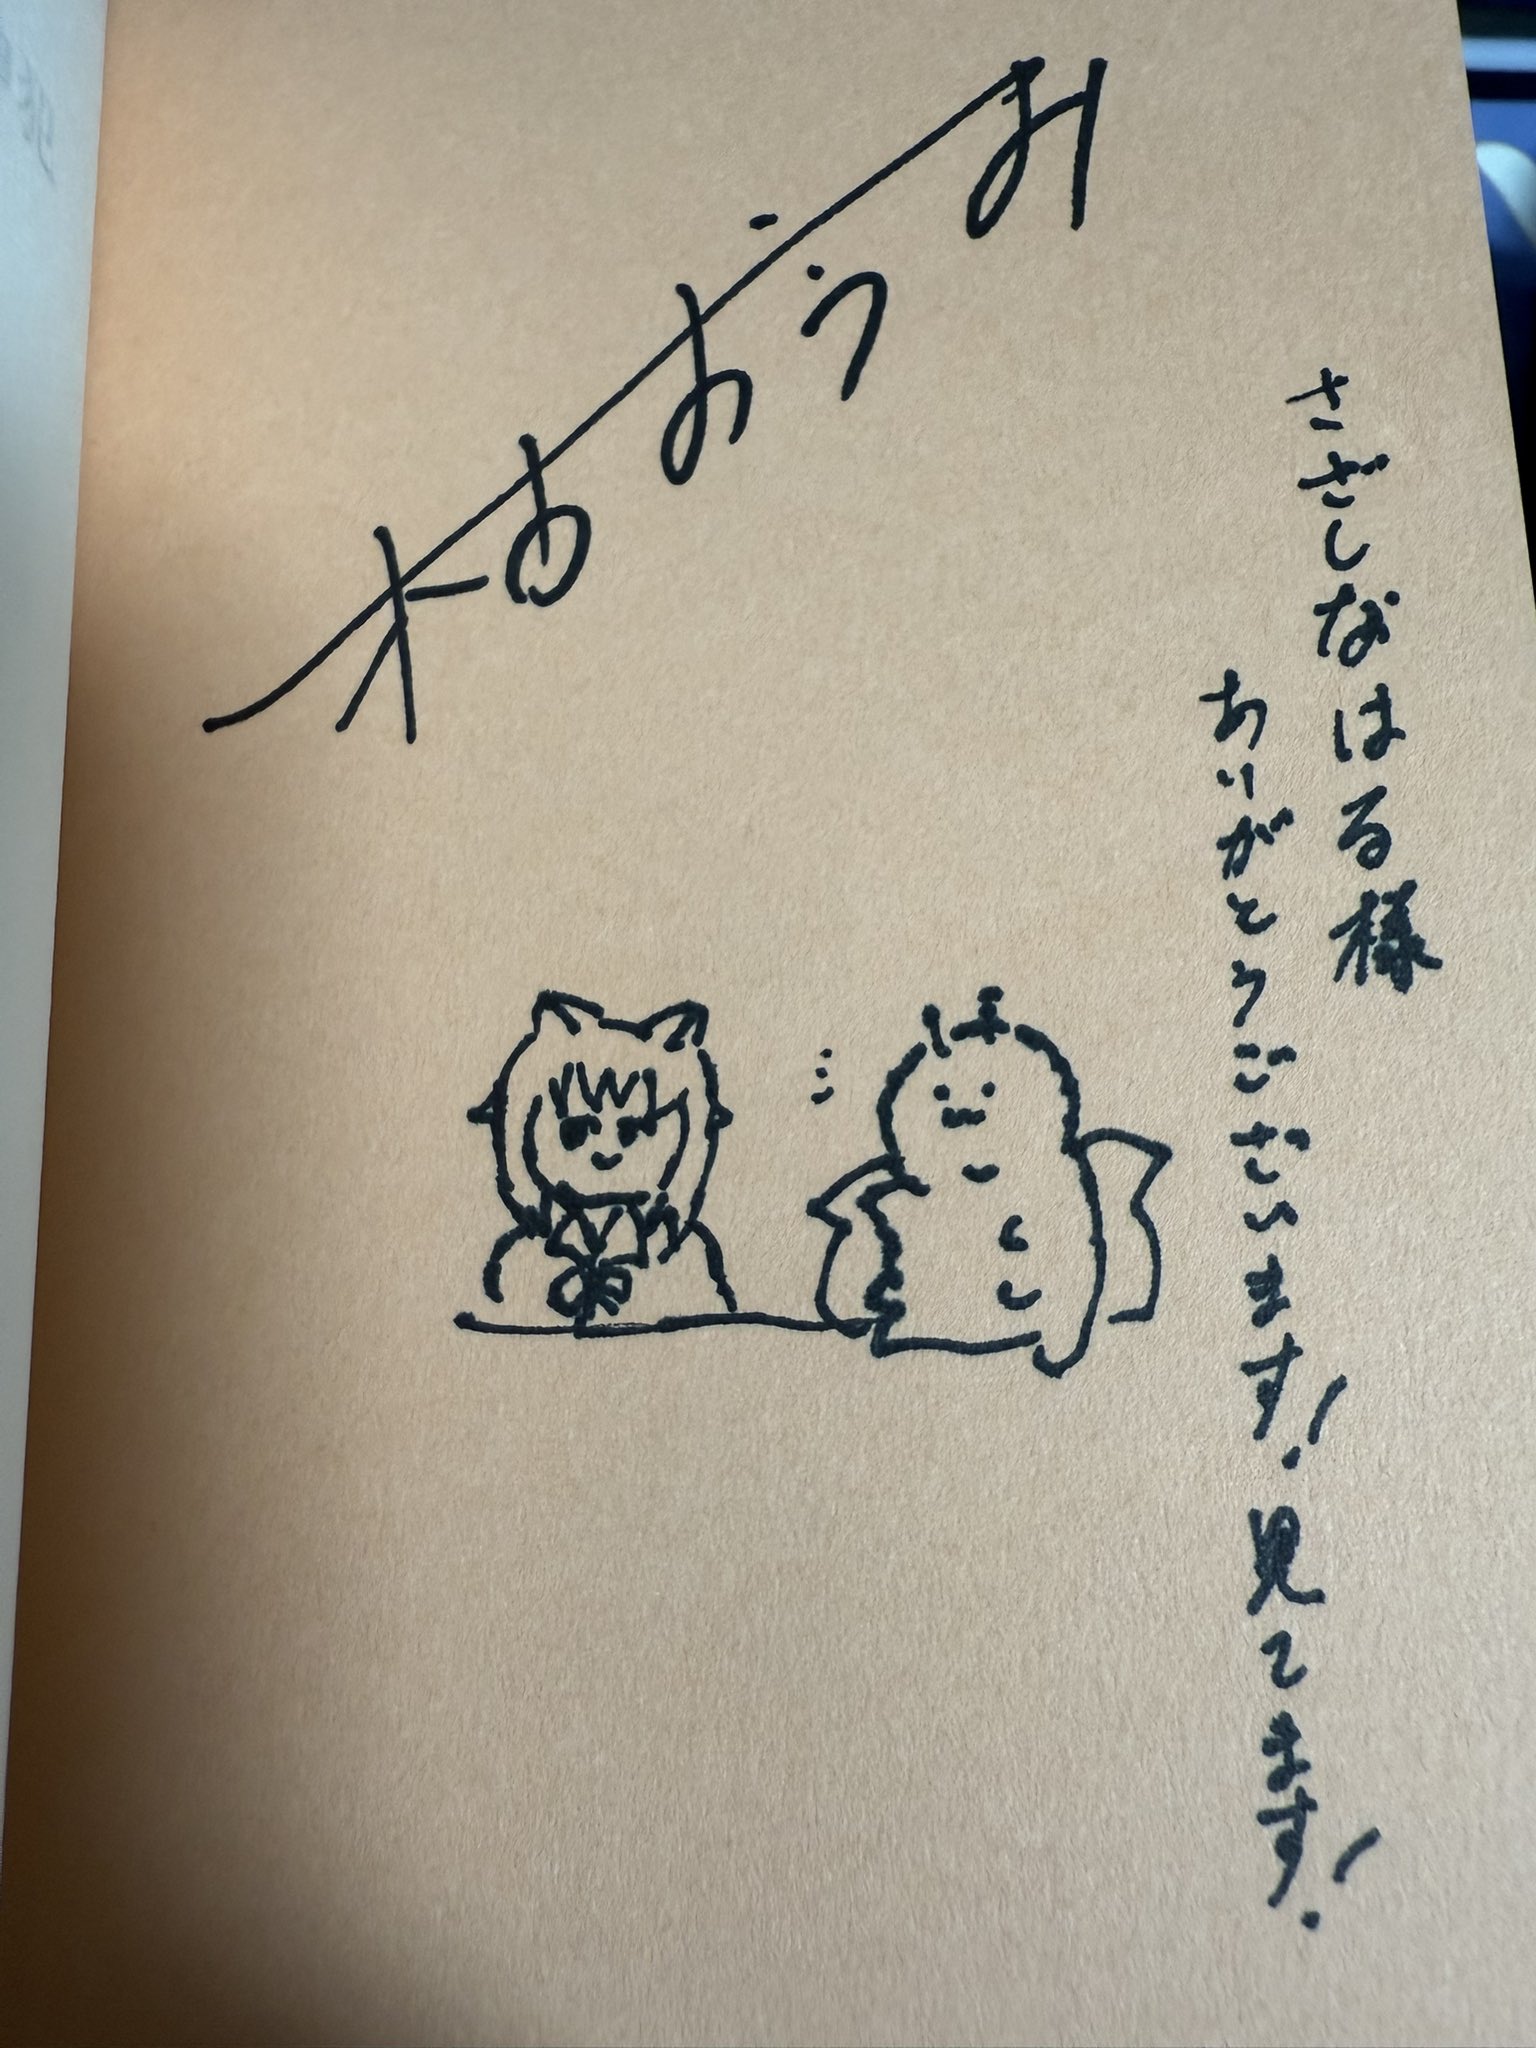 さざしなはる様
ありがとうございます！見てます！